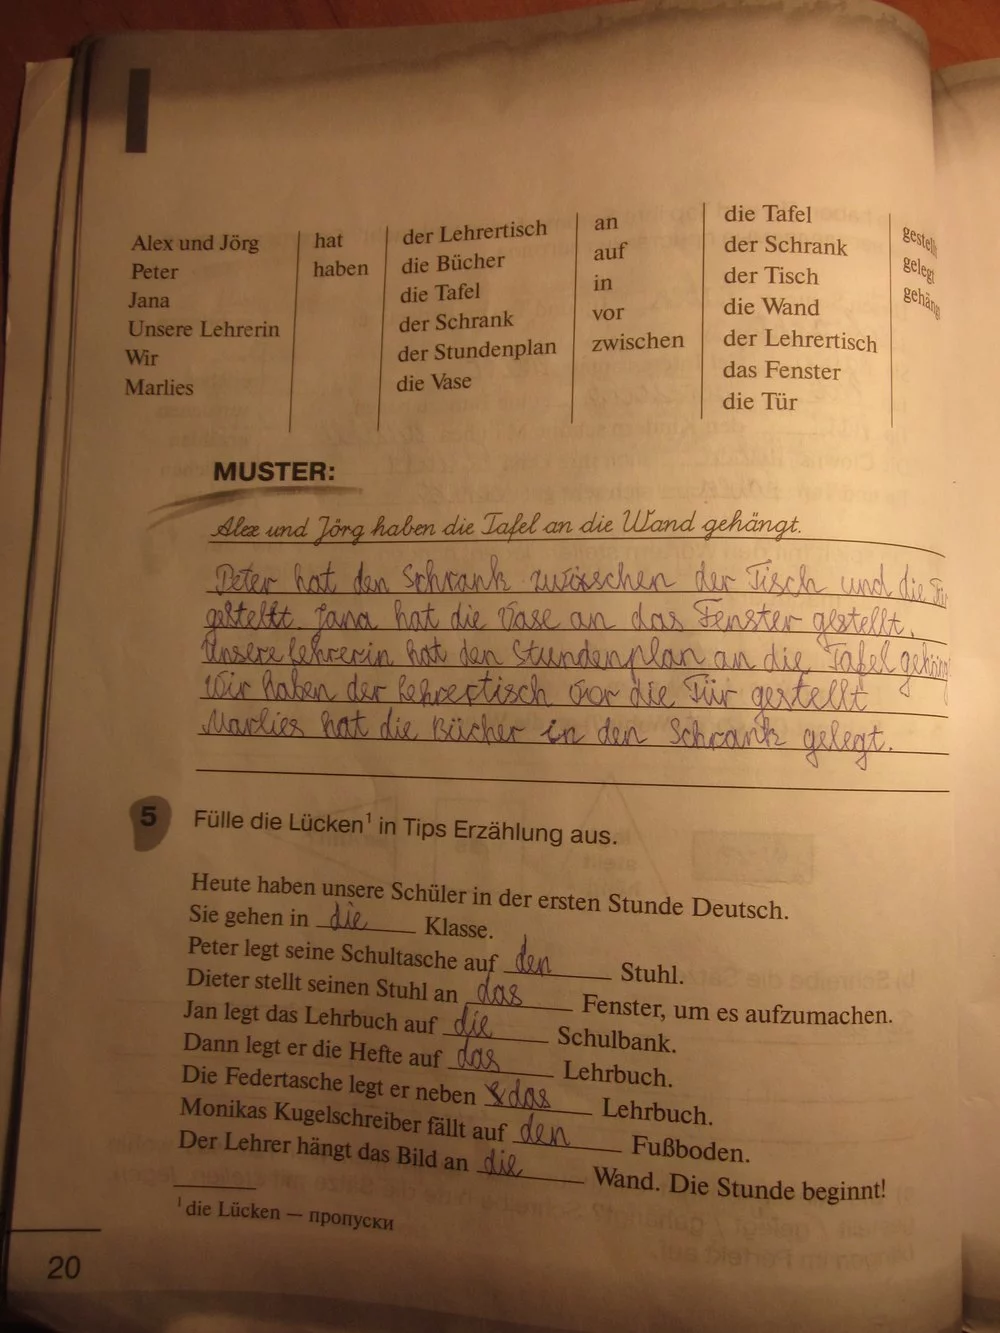 Alex und Jörg | hat | der Lehrertisch | an | die Tafel | gestellt
Peter | haben | die Bücher | auf | der Schrank | gelegt
Jana | die Tafel | in | der Tisch | gehäng
Unsere Lehrerin | der Schrank | vor | die Wand
Wir | der Stundenplan | zwischen | der Lehrertisch
Marlies | die Vase | das Fenster
die Tür
MUSTER:
Alex und Jörg haben die Tafel an die Wand gehängt.
Peter hat den Schrank zwischen der Tisch und die Tür
gestellt. Jana hat die Vase an das Fenster gestellt.
Unsere Lehrerin hat den Stundenplan an die Tafel gehäng
Wir haben der Lehrertisch vor die Tür gestellt
Marlies hat die Bücher in den Schrank gelegt.
5 Fülle die Lücken¹ in Tips Erzählung aus.
Heute haben unsere Schüler in der ersten Stunde Deutsch.
Sie gehen in die Klasse.
Peter legt seine Schultasche auf den Stuhl.
Dieter stellt seinen Stuhl an das Fenster, um es aufzumachen.
Jan legt das Lehrbuch auf die Schulbank.
Dann legt er die Hefte auf das Lehrbuch.
Die Federtasche legt er neben das Lehrbuch.
Monikas Kugelschreiber fällt auf den Fußboden.
Der Lehrer hängt das Bild an die Wand. Die Stunde beginnt!
¹ die Lücken — пропуски
20